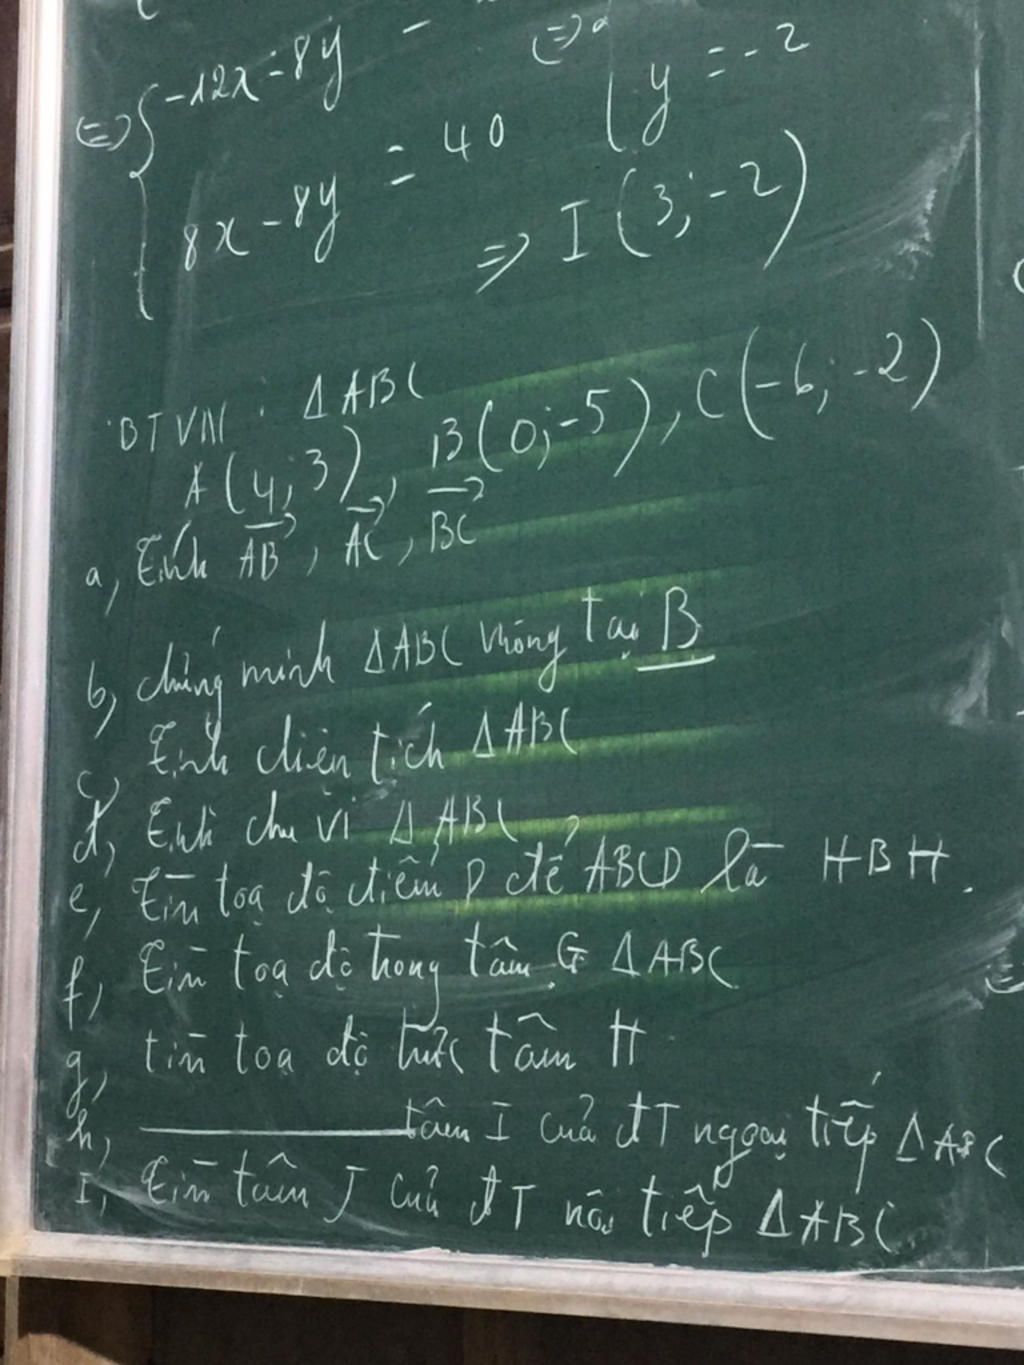 ⇒ { -12x - 8y =
⇒ y = -2
8x - 8y = 40
⇒ I (3; -2)
BTVN. ΔABC
A(4; 3), B(0; -5), C(-6; -2)
a, Tính AB, AC, BC
b, chứng minh ΔABC vuông tại B
c, Tính diện tích ΔABC
d, Tính chu vi ΔABC
e, Tìm toạ độ điểm D để ABCD là HBH.
f, Tìm toạ độ trọng tâm G ΔABC
g, tìm toạ độ trực tâm H
h, ———— tâm I của đT ngoại tiếp ΔABC
I, Tìm tâm J của đT nội tiếp ΔABC